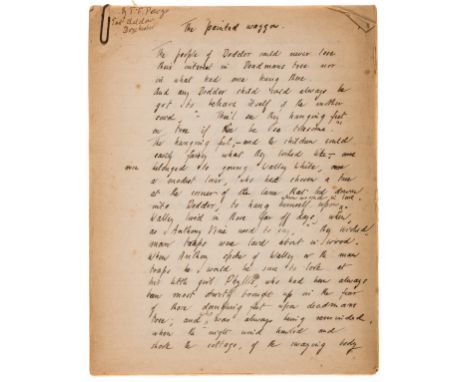 by T. F. Powys
East Chaldon
Dorchester
The painted waggon.
The people of Dodder could never lose
their interest in Deadmans tree nor
in what had once hung there.
And any Dodder child could always be
got to behave itself if the mother
said, "They'll see they hanging feet
on tree if thee be
The hanging feet, – and the children could
easily fancy what they looked like – were
once belonged to young Walley White,
a modest lover, who had chosen a tree
at the corner of the lane that led down
into Dodder, to hang himself upon, when in love.
Walley lived in those far off days, when,
as Anthony Vine used to say, "they wicked
man traps were laid about in wood."
When Anthony spoke of Walley or the man
traps he would be sure to look at
his little girl Phyllis, who had been always
been most strictly brought up in the fear
of those dangling feet upon deadmans
tree; and was always being reminded,
when the night wind howled and
shook the cottage, of the swaying body